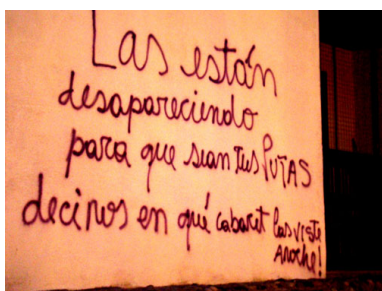 Las están
desapareciendo
para que sean tus PUTAS
decinos en qué cabaret las viste
ANOCHE!